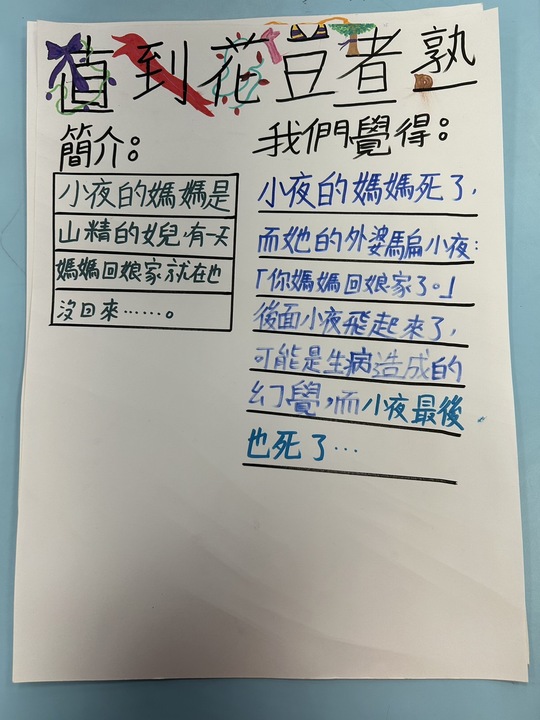 直到花豆煮熟
簡介:
小夜的媽媽是
山精的女兒,有一天
媽媽回娘家就在也
沒回來……。
我們覺得:
小夜的媽媽死了,
而她的外婆騙小夜:
「你媽媽回娘家了。」
後面小夜飛起來了,
可能是生病造成的
幻覺,而小夜最後
也死了…